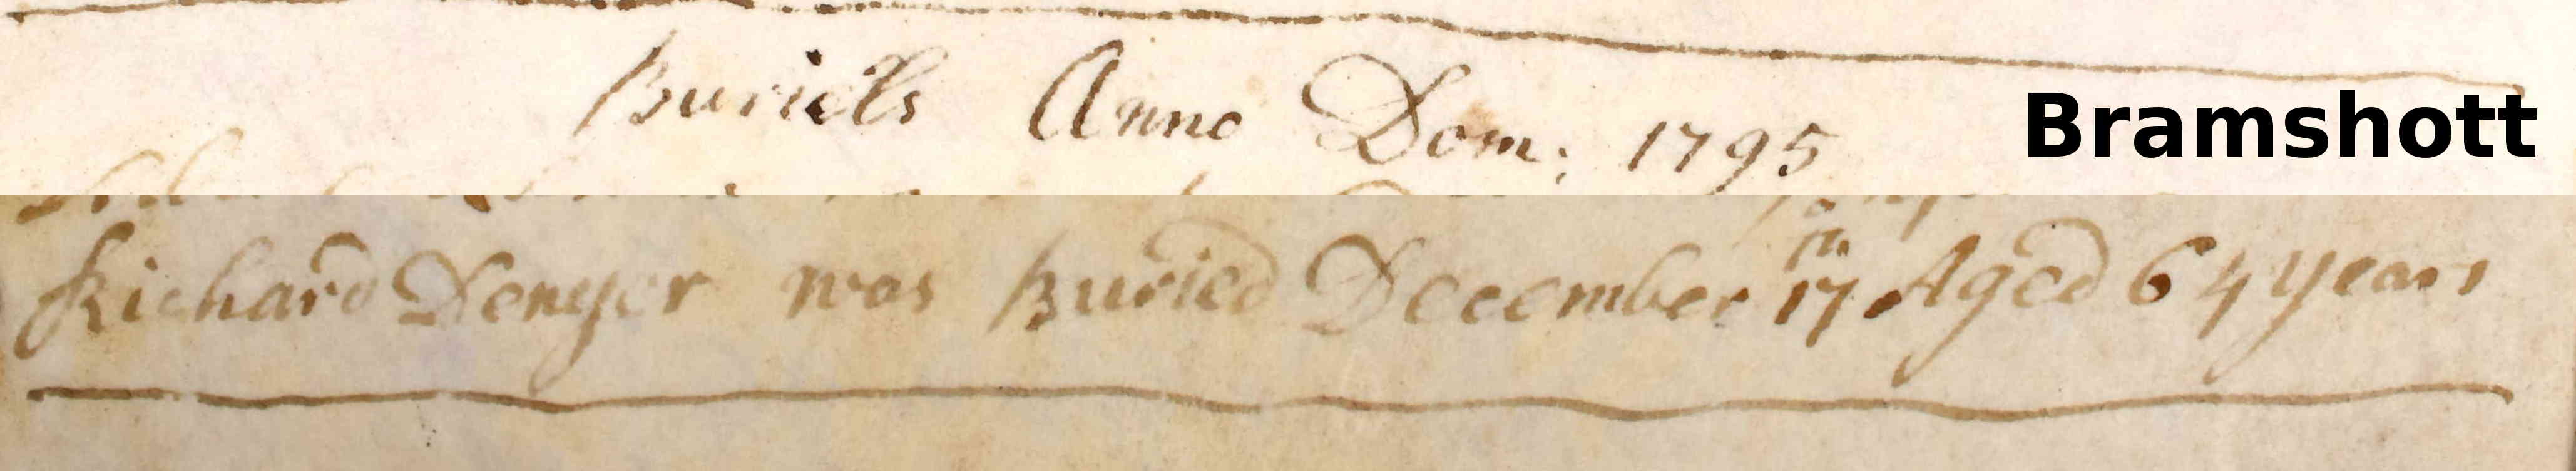 Buriels Anno Dom: 1795
Bramshott
Richard Denyer was Buried December 17th Aged 64 years